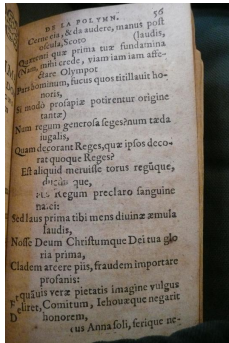 DE LA POLYMN. 56
Cerne eia, & da audere, manus post
oscula, Scoto (laudis,
Quærenti quæ prima tuæ fundamina
(Nam, mihi crede, viam iam iam affe-
ctare Olympo)
Pars hominum, fucus quos titillauit ho-
noris,
Si modò prosapiæ potirentur origine
tantæ)
Num regum generosa seges? num tæda
iugalis,
Quam decorant Reges, quæ ipsos deco-
rat quoque Reges?
Est aliquid meruisse torus regũque,
que,
Regum preclaro sanguine
nasci:
Sed laus prima tibi mens diuinæ æmula
laudis,
Nosse Deum Christumque Dei tua glo
ria prima,
Cladem arcere piis, fraudem importare
profanis:
quāuis veræ pietatis imagine vulgus
Comitum, Iehouæque negarit
honorem,
cus Anna soli, serique ne-